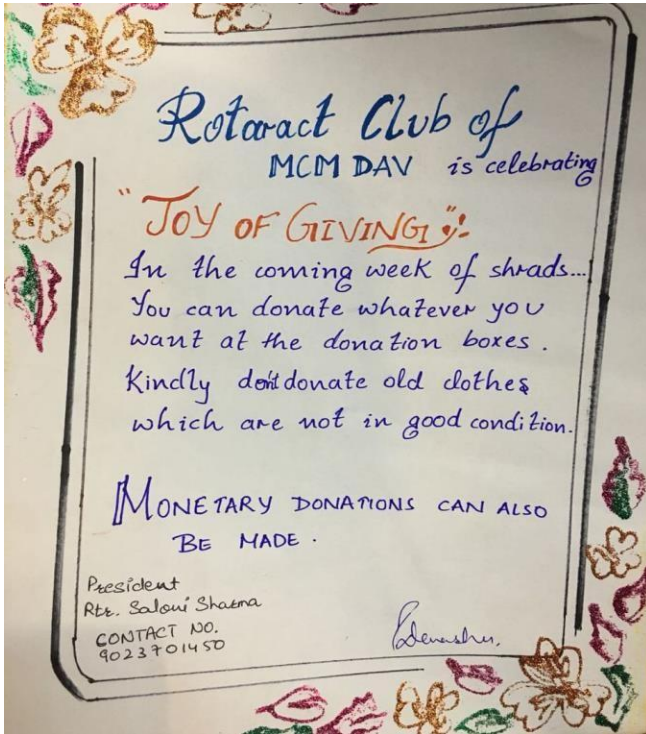 Rotaract Club of
MCM DAV is celebrating
"JOY OF GIVING"
In the coming week of shrads...
You can donate whatever you
want at the donation boxes.
Kindly don't donate old clothes
which are not in good condition.
MONETARY DONATIONS CAN ALSO
BE MADE.
President
Rtr. Saloni Sharma
CONTACT NO.
9023701450